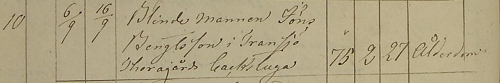 10 6/9 16/9 Blinde mannen Jöns
Bengtsson i Transjö
Thoragårds backstuga 75 2 27 Ålderdom